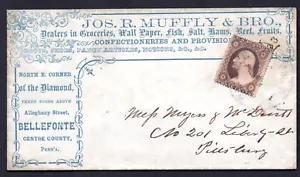 JOS. R. MUFFLY & BRO.,
Dealers in Groceries, Wall Paper, Fish, Salt, Hams, Beef, Fruits,
CONFECTIONERIES AND PROVISIONS
NOTIONS, &C., &C.
NORTH E. CORNER
Of the Diamond,
THREE DOORS ABOVE
Alleghany Street,
BELLEFONTE
CENTRE COUNTY,
PENN'A.
Mess Myers & McDevitt
No 201 Liberty St
Pittsburg